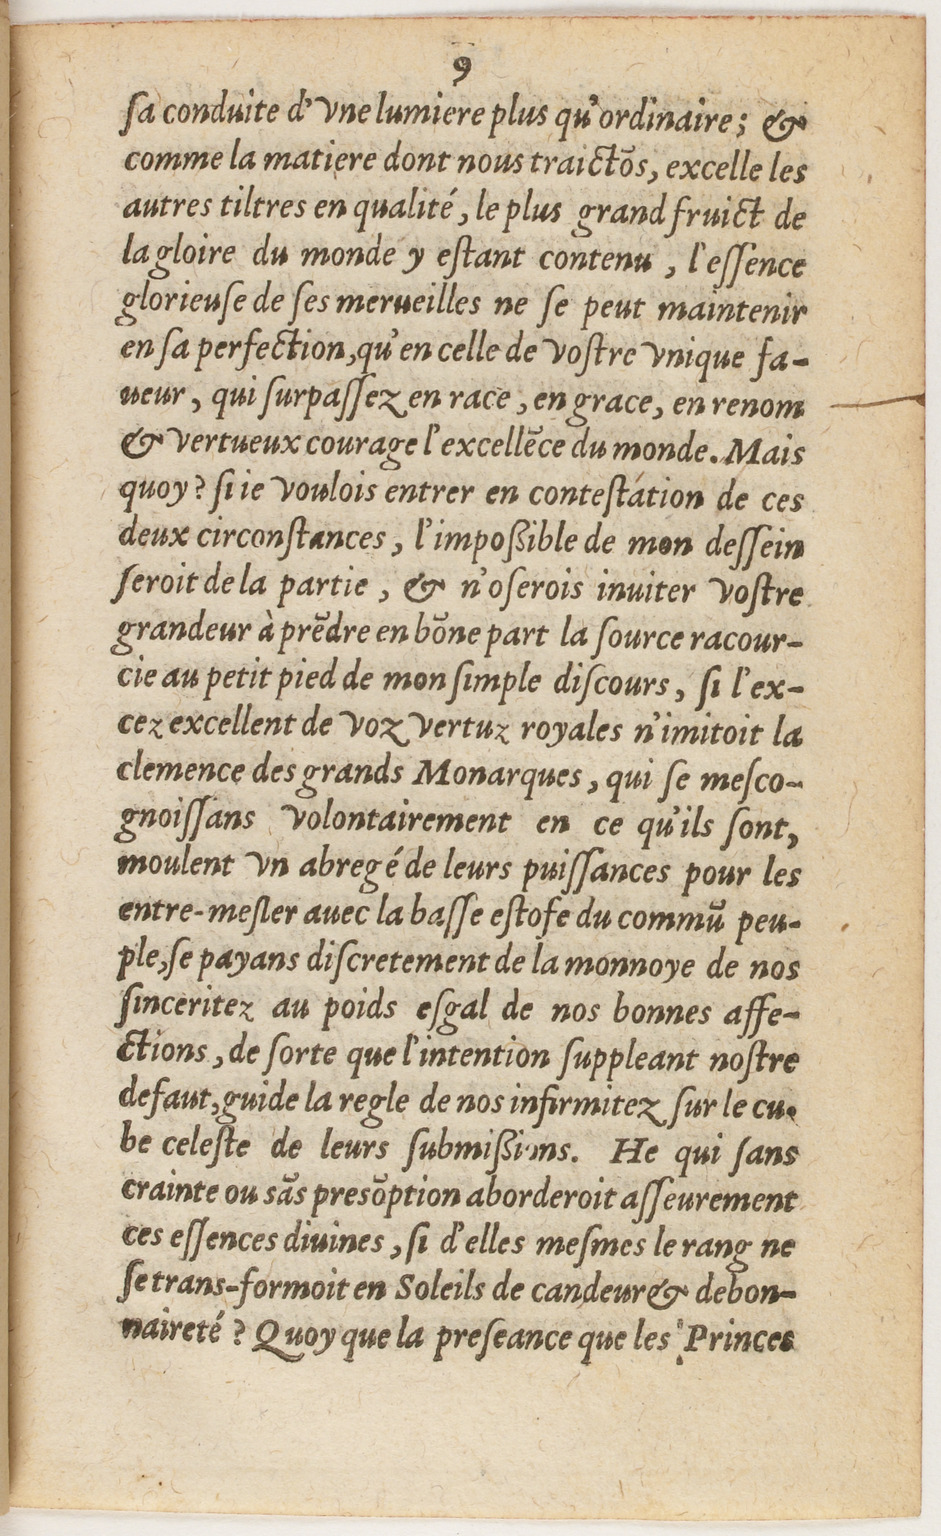 9
ſa conduite d'vne lumiere plus qu'ordinaire; &
comme la matiere dont nous traictõs, excelle les
autres tiltres en qualité, le plus grand fruict de
la gloire du monde y eſtant contenu, l'eſſence
glorieuſe de ſes merueilles ne ſe peut maintenir
en ſa perfection, qu'en celle de voſtre vnique fa-
ueur, qui ſurpaſſez en race, en grace, en renom
& vertueux courage l'excellẽce du monde. Mais
quoy? ſi ie voulois entrer en conteſtation de ces
deux circonſtances, l'impoßible de mon deſſein
ſeroit de la partie, & n'oſerois inuiter voſtre
grandeur à prẽdre en bõne part la ſource racour-
cie au petit pied de mon ſimple diſcours, ſi l'ex-
cez excellent de voz vertuz royales n'imitoit la
clemence des grands Monarques, qui ſe meſco-
gnoiſſans volontairement en ce qu'ils ſont,
moulent vn abregé de leurs puiſſances pour les
entre-meſler auec la baſſe eſtofe du commũ peu-
ple, ſe payans diſcretement de la monnoye de nos
ſinceritez au poids eſgal de nos bonnes affe-
ctions, de ſorte que l'intention ſuppleant noſtre
defaut, guide la regle de nos infirmitez ſur le cu-
be celeſte de leurs ſubmißions. He qui ſans
crainte ou sãs presõption aborderoit aſſeurement
ces eſſences diuines, ſi d'elles meſmes le rang ne
ſe trans-formoit en Soleils de candeur & debon-
naireté? Quoy que la preſeance que les Princes